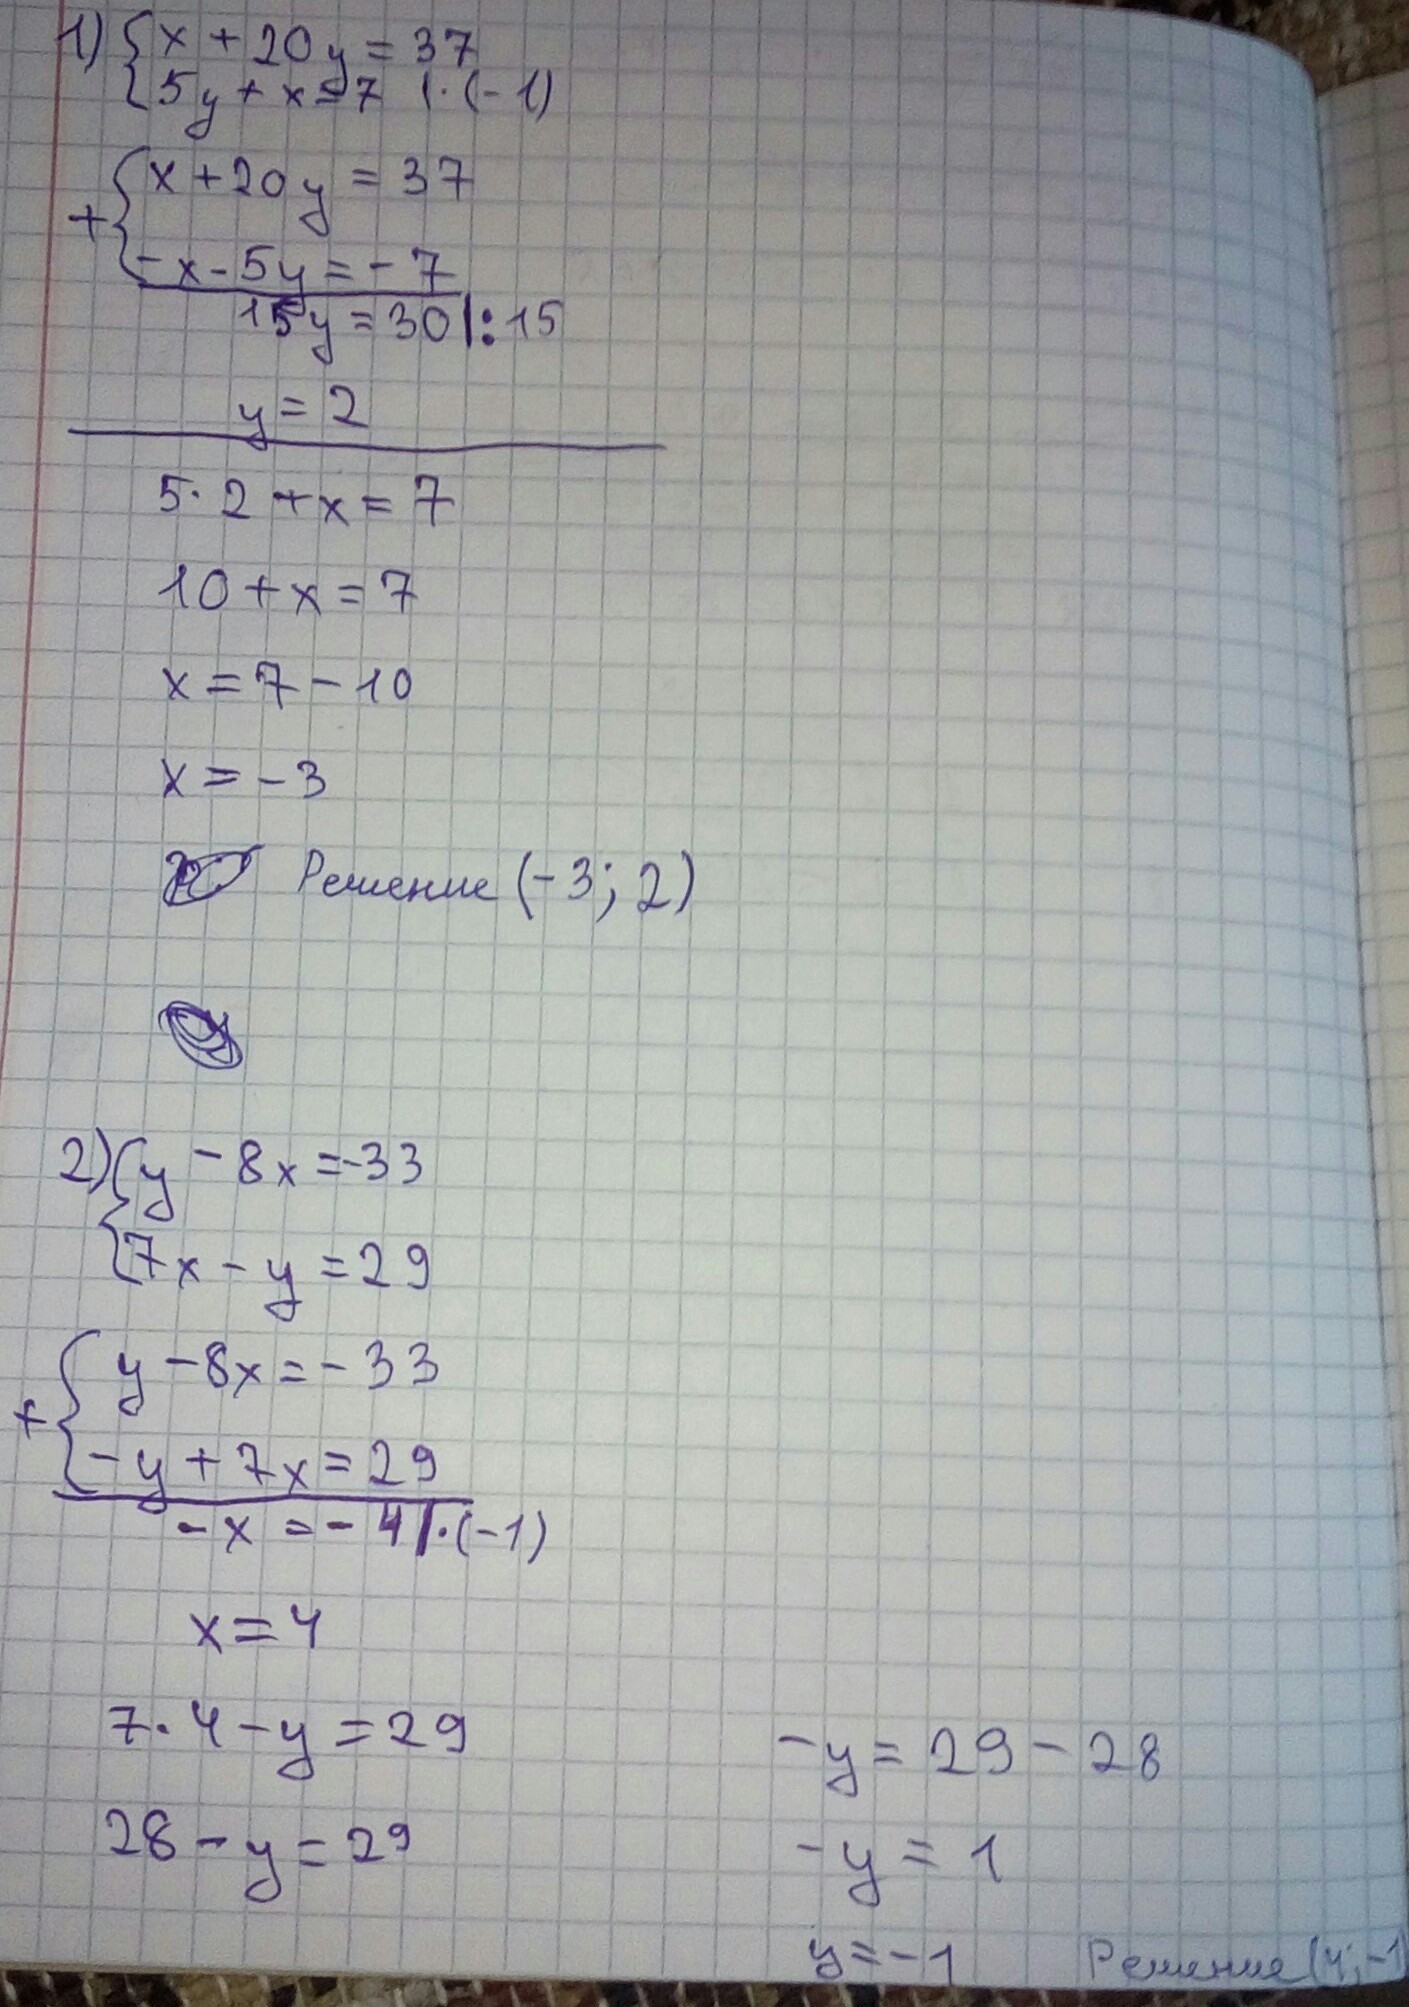 1) { x + 20y = 37
{ 5y + x = 7 |·(-1)
+ { x + 20y = 37
{ -x - 5y = -7
15y = 30 |:15
y = 2
5·2 + x = 7
10 + x = 7
x = 7 - 10
x = -3
Решение (-3; 2)
2) { y - 8x = -33
{ 7x - y = 29
+ { y - 8x = -33
{ -y + 7x = 29
-x = -4 |·(-1)
x = 4
7·4 - y = 29
28 - y = 29
-y = 29 - 28
-y = 1
y = -1
Решение (4; -1)